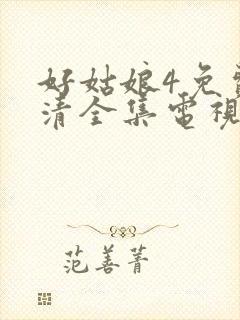 好姑娘4免
清全集電視
范善菁